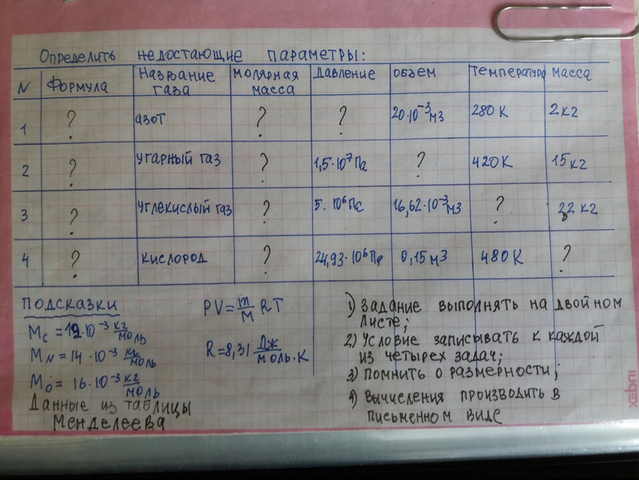 Определить недостающие параметры:
N Формула Название газа Молярная масса Давление объем температура масса
1 ? азот ? ? 20·10⁻³ м3 280 К 2 кг
2 ? угарный газ ? 1,5·10⁷ Па ? 420 К 15 кг
3 ? углекислый газ ? 5·10⁶ Па 16,62·10⁻³ м3 ? 22 кг
4 ? кислород ? 24,93·10⁶ Па 0,15 м3 480 К ?
Подсказки
Mc = 12·10⁻³ кг/моль
MN = 14·10⁻³ кг/моль
Mo = 16·10⁻³ кг/моль
Данные из таблицы
Менделеева
PV = m/M RT
R = 8,31 Дж/моль·К
1) Задание выполнять на двойном
листе;
2) Условие записывать к каждой
из четырех задач;
3) Помнить о размерности;
4) Вычисления производить в
письменном виде
index